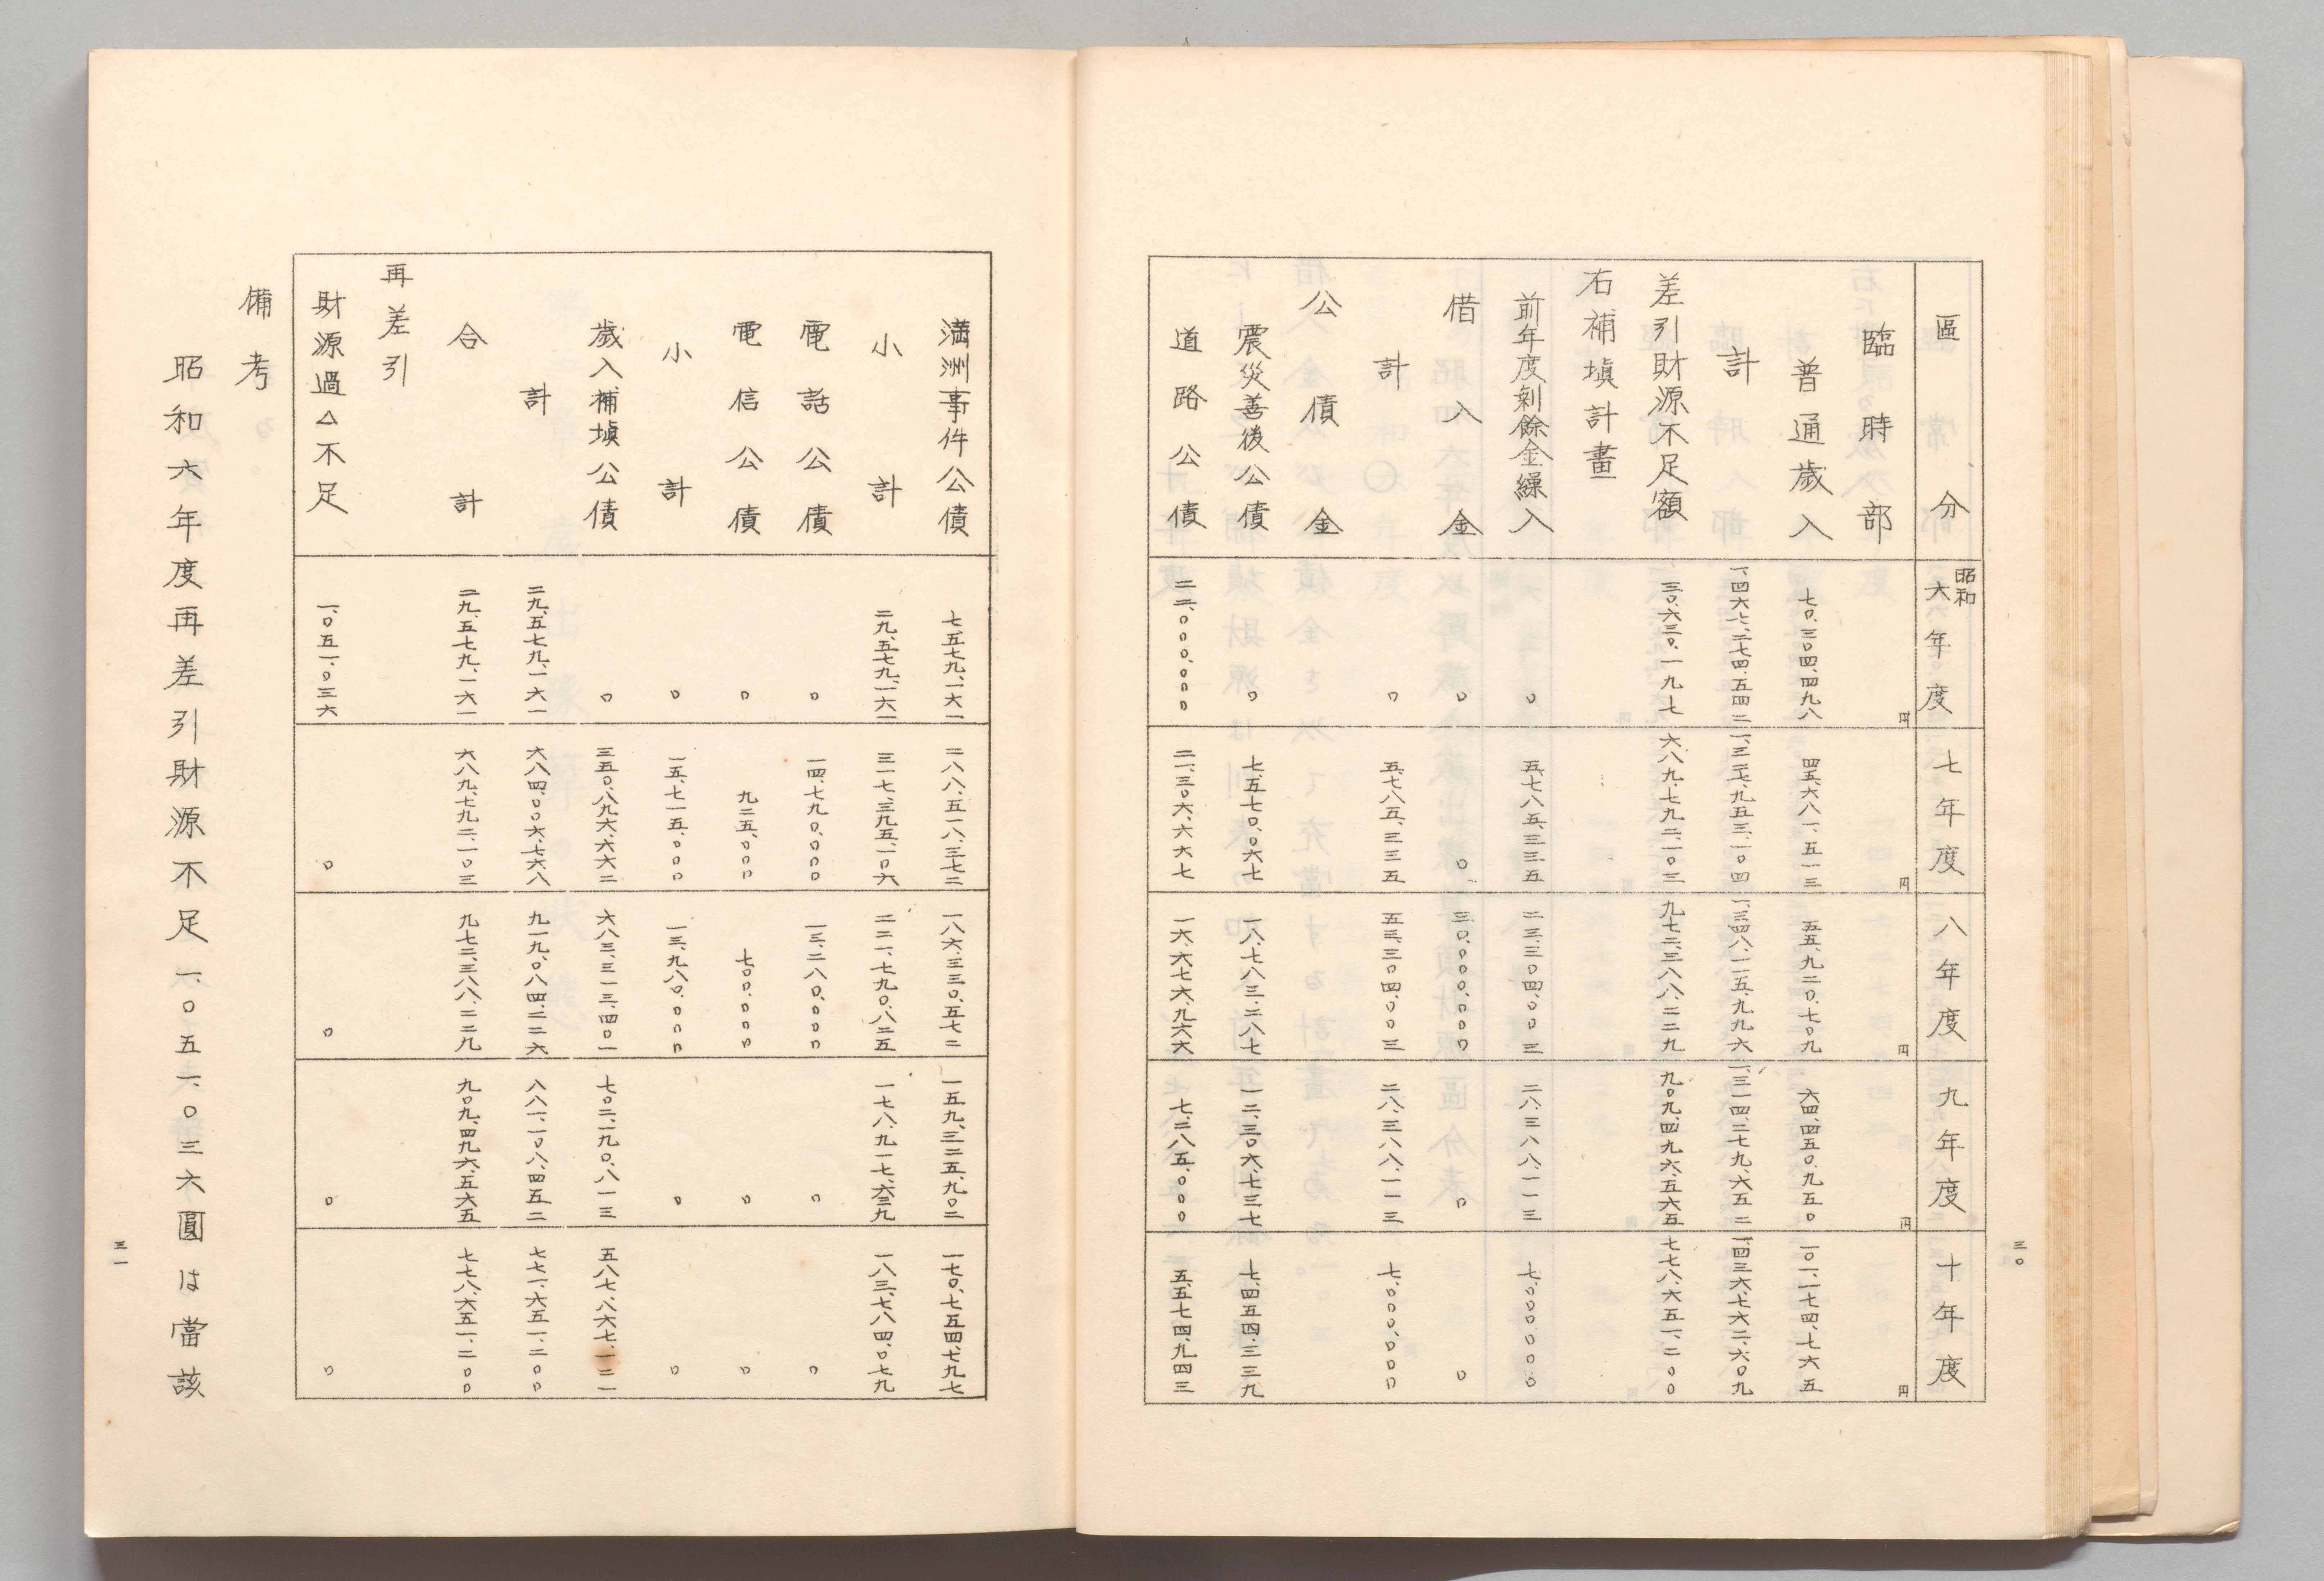 三〇
區分 昭和六年度 七年度 八年度 九年度 十年度
臨時部 円 円 円 円 円
普通歳入 七〇、三〇四、四九八 四五、六八一、五一三 五五、九二〇、七〇九 六四、四五〇、九五〇 一〇一、一七四、七六五
計 一、四六七、二七四、五四二 一、三二七、九五三、一〇四 一、三四八、一一五、九九六 一、三一四、二七九、六五二 一、四三六、七六二、六〇九
差引財源不足額 三〇、六三〇、一九七 六八九、七九二、一〇三 九七二、三八八、二二九 九〇九、四九六、五六五 七七八、六五一、二〇〇
右補塡計畫
前年度剰餘金繰入 〇 五、七八五、三三五 二三、三〇四、〇〇三 二八、三八八、一一三 七、〇〇〇、〇〇〇
借入金 〇 〇 三〇、〇〇〇、〇〇〇 〇 〇
計 〇 五、七八五、三三五 五三、三〇四、〇〇三 二八、三八八、一一三 七、〇〇〇、〇〇〇
公債金
震災善後公債 〇 七、五七〇、〇六七 一八、七八三、二八七 一二、三〇六、七三七 七、四五四、三三九
道路公債 二二、〇〇〇、〇〇〇 二一、三〇六、六六七 一六、六七六、九六六 七、二八五、〇〇〇 五、五七四、九四三
満洲事件公債 七、五七九、一六一 二八八、五一八、三七二 一八六、三三〇、五七二 一五九、三二五、九〇二 一七〇、七五四、七九七
小計 二九、五七九、一六一 三一七、三九五、一〇六 二二一、七九〇、八二五 一七八、九一七、六三九 一八三、七八四、〇七九
電話公債 〇 一四、七九〇、〇〇〇 一三、二八〇、〇〇〇 〇 〇
電信公債 〇 九二五、〇〇〇 七〇〇、〇〇〇 〇 〇
小計 〇 一五、七一五、〇〇〇 一三、九八〇、〇〇〇 〇 〇
歳入補塡公債 〇 三五〇、八九六、六六二 六八三、三一三、四〇一 七〇二、一九〇、八一三 五八七、八六七、一二一
計 二九、五七九、一六一 六八四、〇〇六、七六八 九一九、〇八四、二二六 八八一、一〇八、四五二 七七一、六五一、二〇〇
合計 二九、五七九、一六一 六八九、七九二、一〇三 九七二、三八八、二二九 九〇九、四九六、五六五 七七八、六五一、二〇〇
再差引
財源過△不足 一、〇五一、〇三六 〇 〇 〇 〇
備考
昭和六年度再差引財源不足一、〇五一、〇三六圓は當該
三一